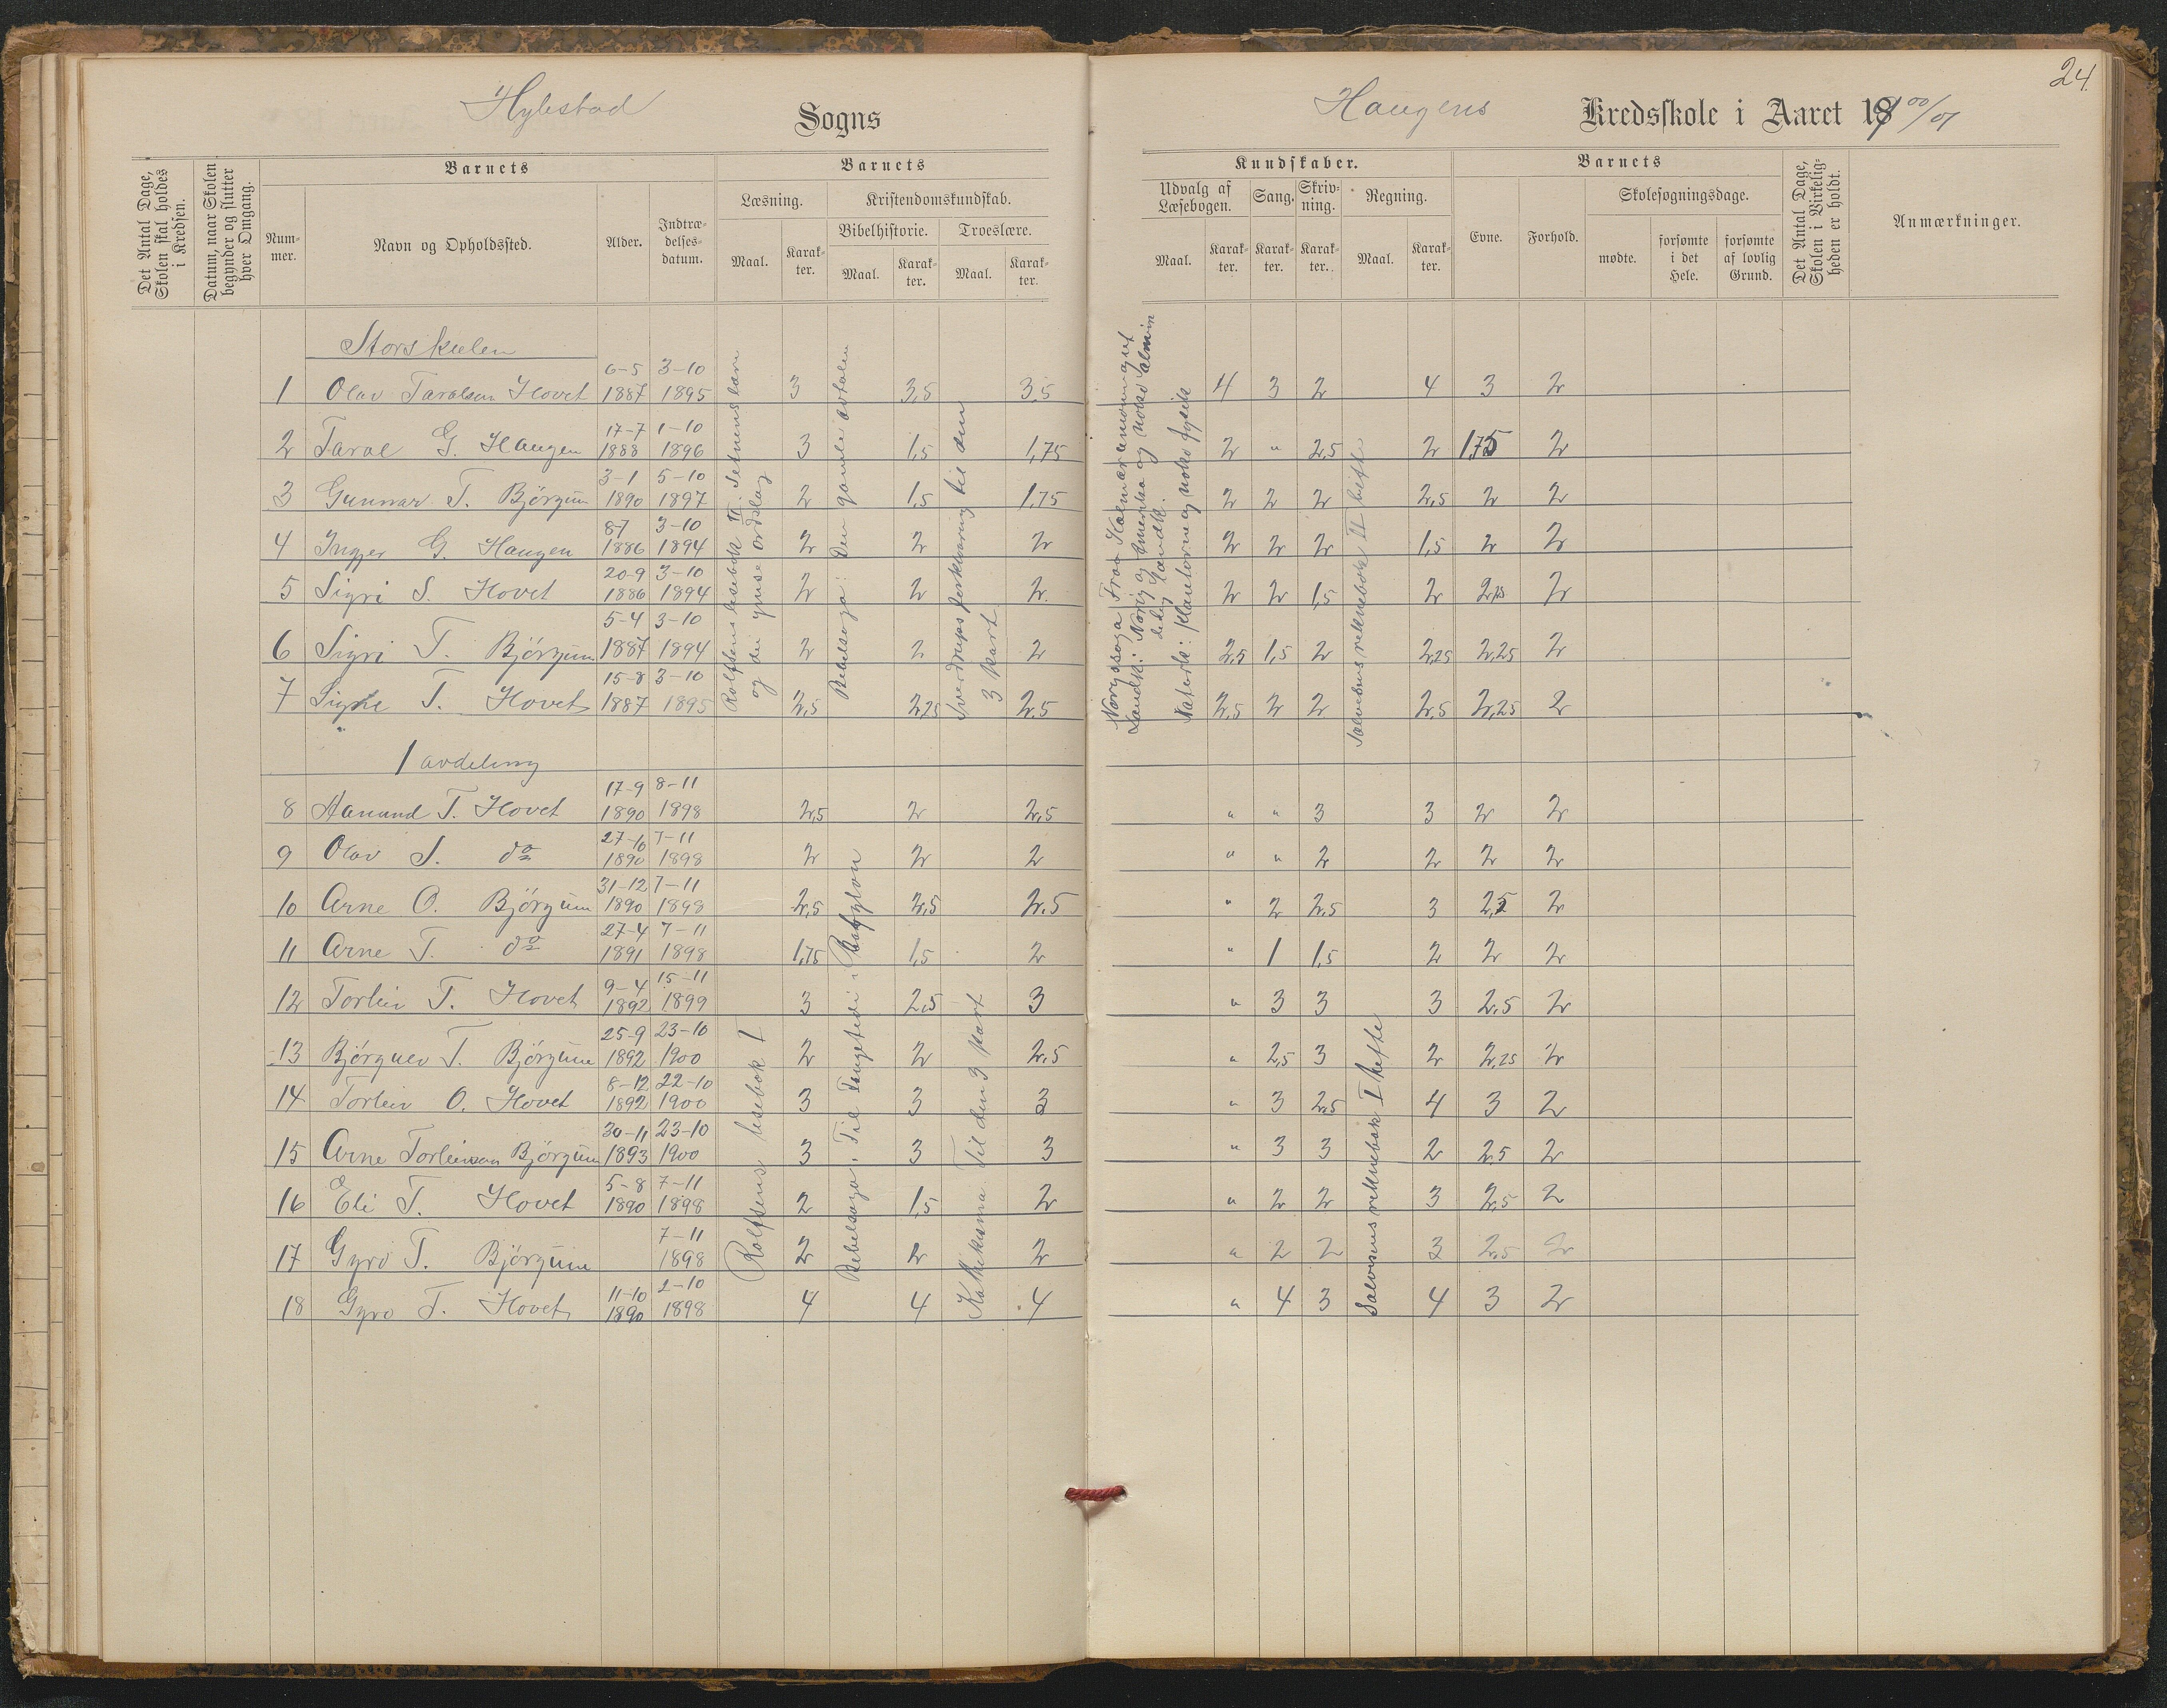 24.
Hylestad Sogns
Haugens Kredsskole i Aaret 1900/01
Det Antal Dage, Skolen skal holdes i Kredsen.
Datum, naar Skolen begynder og slutter hver Omgang.
Barnets
Num-mer.
Navn og Opholdssted.
Alder.
Indtræ-delses-datum.
Barnets
Læsning.
Maal.
Karak-ter.
Kristendomskundskab.
Bibelhistorie.
Maal.
Karak-ter.
Troeslære.
Maal.
Karak-ter.
Kundskaber.
Udvalg af Læsebogen.
Maal.
Karak-ter.
Sang.
Karak-ter.
Skriv-ning.
Karak-ter.
Regning.
Maal.
Karak-ter.
Barnets
Evne.
Forhold.
Skolesøgningsdage.
mødte.
forsømte i det Hele.
forsømte af lovlig Grund.
Det Antal Dage, Skolen i Virkelig-heden er holdt.
Anmærkninger.
Storskulen
1 Olav Taralsen Hovet 6-5 1887 3-10 1895 3 3,5 3,5 4 3 2 4 3 2
2 Taral G. Haugen 17-7 1888 1-10 1896 3 1,5 1,75 2 " 2,5 2 1,75 2
3 Gunnar T. Björgum 3-1 1890 5-10 1897 2 1,5 1,75 2 2 2 2,5 2 2
4 Ingjer G. Haugen 8-7 1886 3-10 1894 2 2 2 2 2 2 1,5 2 2
5 Sigri S. Hovet 20-9 1886 3-10 1894 2 2 2. 2 2 1,5 2 2,25 2
6 Sigri T. Björgum 5-4 1887 3-10 1894 2 2 2 2,5 1,5 2 2,25 2,25 2
7 Signe T. Hovet 15-8 1887 3-10 1895 2,5 2,25 2,5 2,5 2 2 2,5 2,25 2
Rolfsens lesebok III. Setnenslæra og dei ymse ordslag
Bibelsoga: Den gamle avtalen
Sverdrups forklaring til den 3 part
Landk: Norig og Amerika og noko almin
delig Landk.
noko fysik
II hefte
1 avdeling
8 Aanund T. Hovet 17-9 1890 8-11 1898 2,5 2 2,5 " " 3 3 2 2
9 Olav S. do 27-10 1890 7-11 1898 2 2 2 " " 2 2 2 2
10 Arne O. Björgum 31-12 1890 7-11 1898 2,5 2,5 2,5 " 2 2,5 3 2,5 2
11 Arne T. do 27-4 1891 7-11 1898 1,75 1,5 2 " 1 1,5 2 2 2
12 Torleiv T. Hovet 9-4 1892 15-11 1899 3 2,5 3 " 3 3 3 2,5 2
13 Björgulv T. Björgum 25-9 1892 23-10 1900 2 2 2,5 " 2,5 3 2 2,25 2
14 Torleiv O. Hovet 8-12 1892 22-10 1900 3 3 3 " 3 2,5 4 3 2
15 Arne Torleivson Björgum 30-11 1893 23-10 1900 3 3 3 " 3 3 2 2,5 2
16 Eli T. Hovet 5-8 1890 7-11 1898 2 1,5 2 " 2 2 3 2,5 2
17 Gyro T. Björgum 7-11 1898 2 2 2 " 2 2 3 2,5 2
18 Gyro T. Hovet 11-10 1890 2-10 1898 4 4 4 " 4 3 4 3 2
Rolfsens lesebok I
Bibelsoga. Til Fangetidi i Babylon
Katekisma Til den 3 part
reknebok I hefte